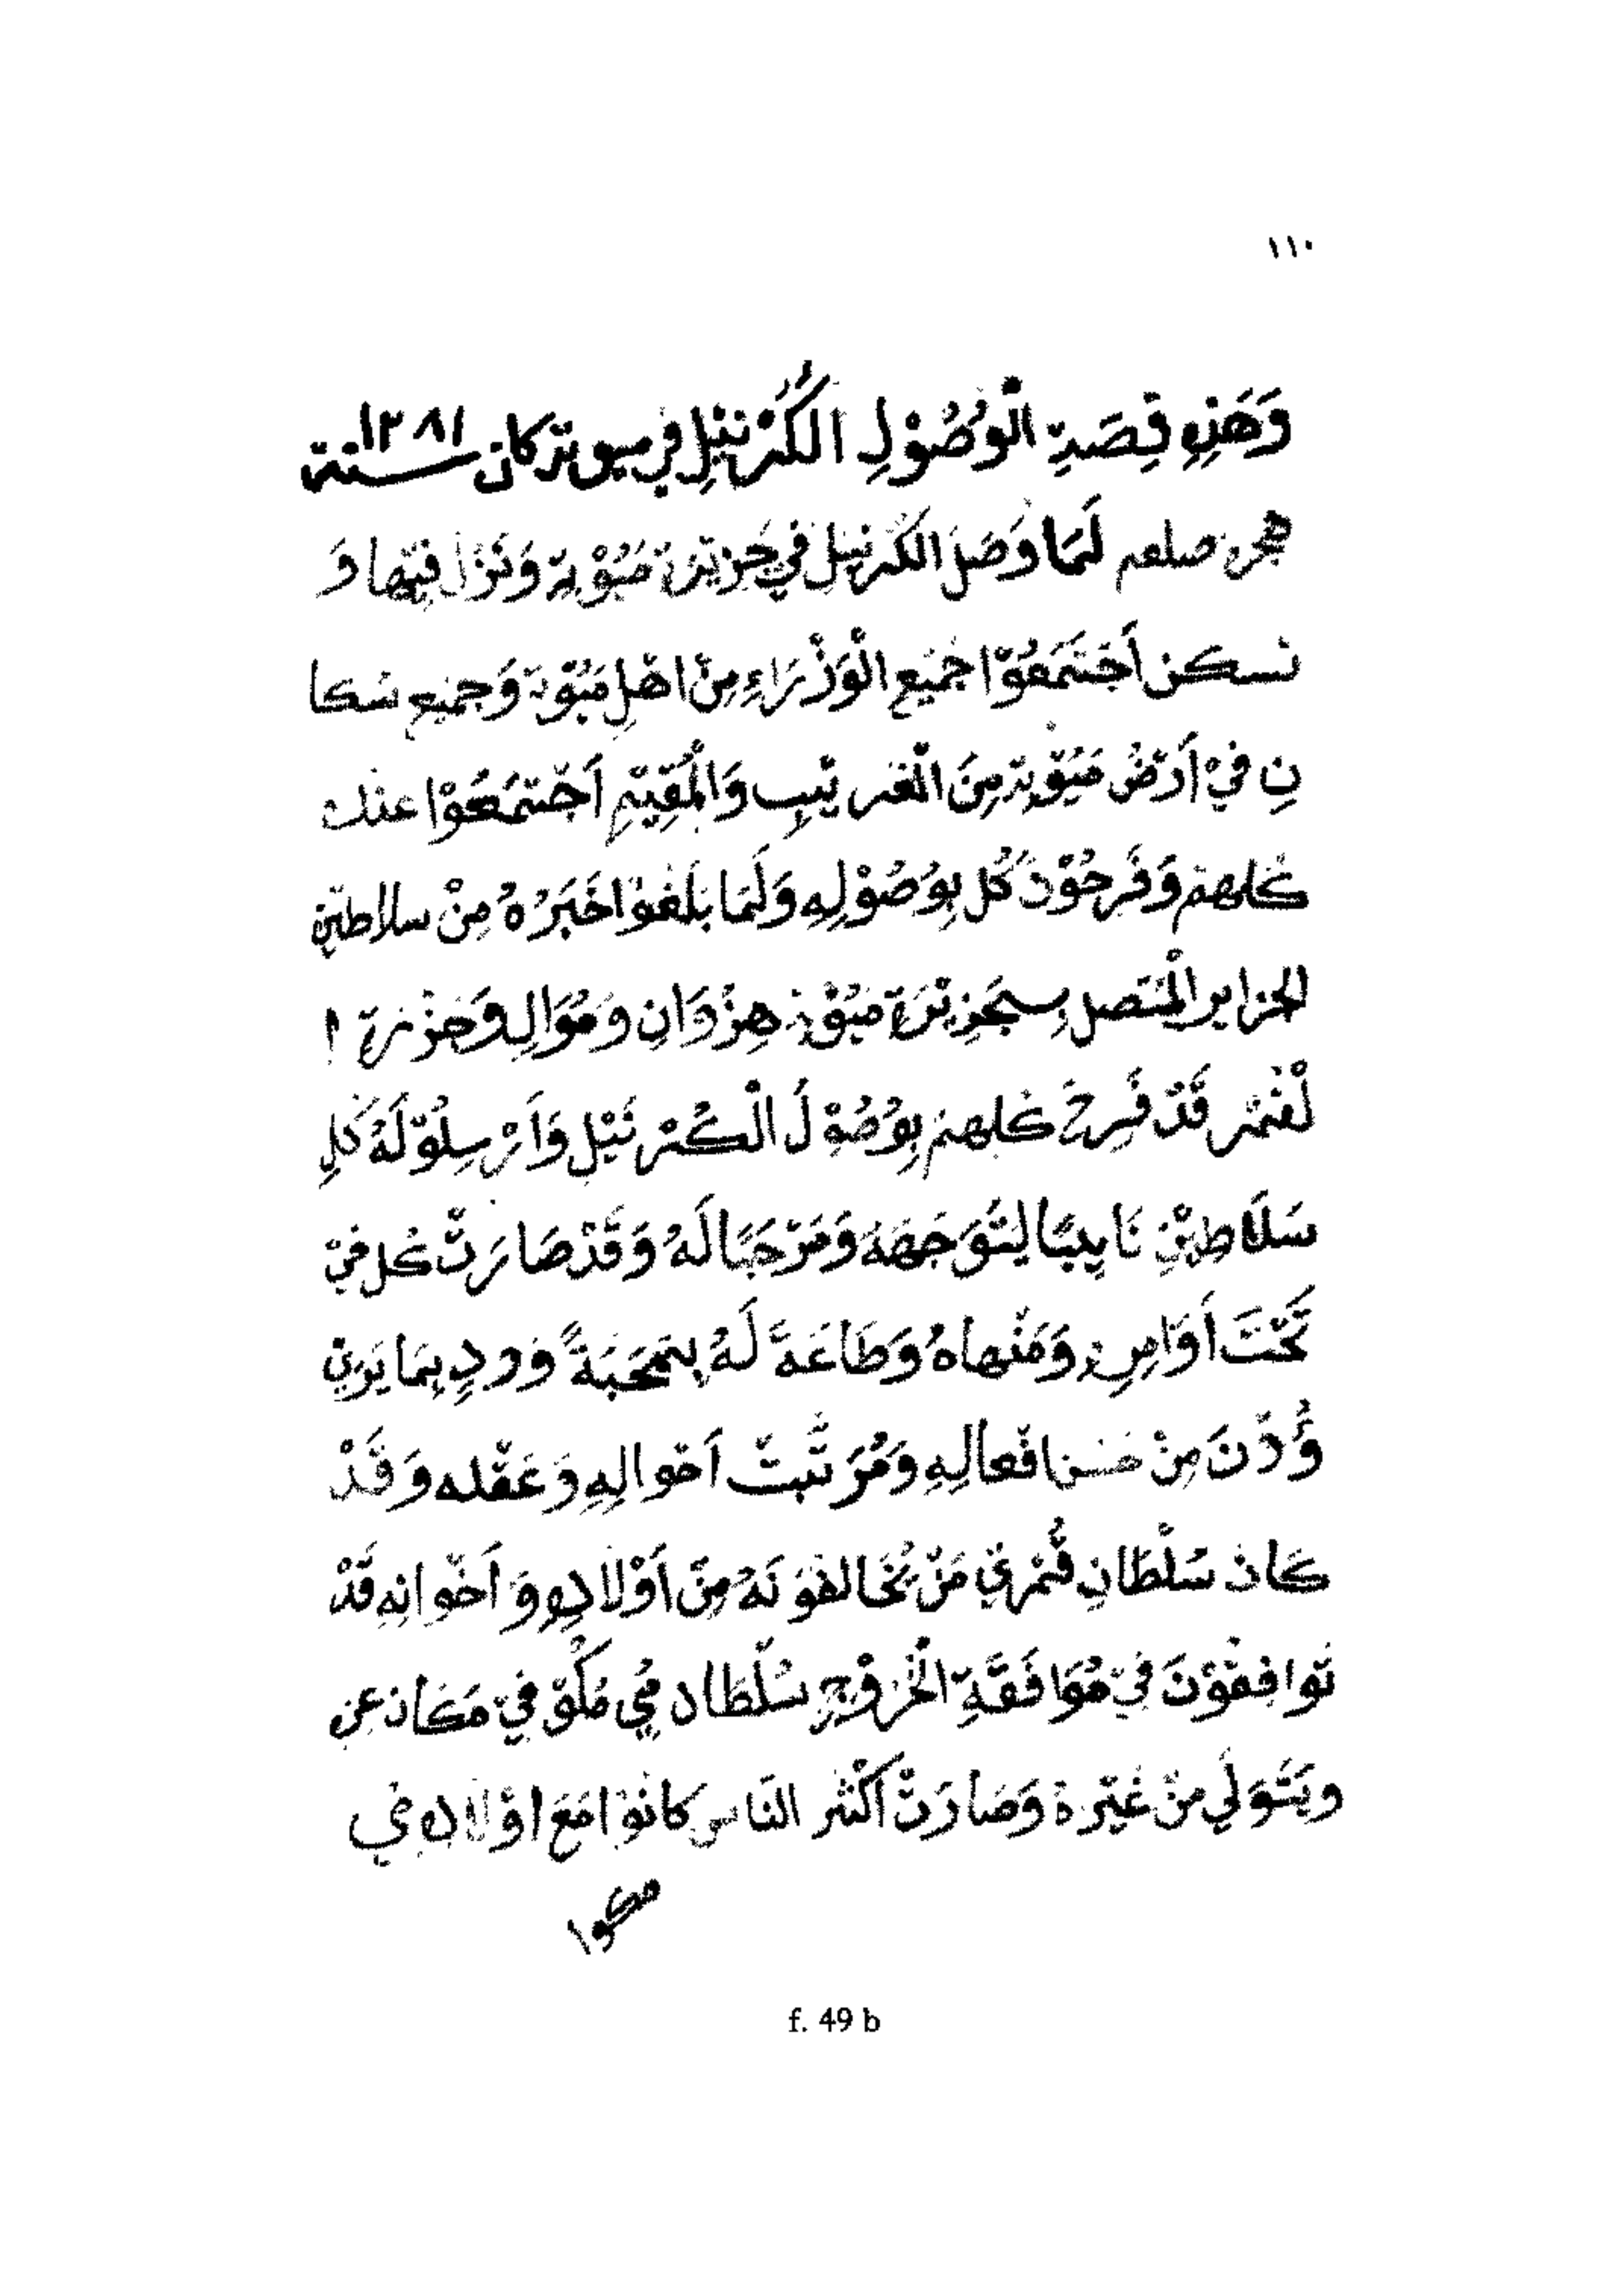 ١١٠
وَهَذِهِ قِصَةِ الْوُصُوْلِ الكُرْنَيْلِ في سيو تركان سنة ١٢٨١
هجرة صلعم لَمَا وَصَلَ الكُرنيل في جَزِيْرَة مَيُوْتة وَنَزَلَ فيْها وَ
نسكن اَجْتَمَعُوْا جَمْيعِ الْوَزْرَاءِ مِنْ اهْلِ مَيُوْتة وَجميعِ سُكا
نِ فيْ اَرْضُ مَيُوْتة مِنَ الْغَريْبِ وَالْمُقِيْمِ اَجْتَمَعَوْا عنْدك
كلهمْ وَفَرِحُوْدَ كُل بِوُصُوْلِهِ وَلَمَا بَلَغوْا خَبَرُهُ مِنْ سلاطيْن
الجزاير الْمتصل بِسجَزِيْرَة مَيُوْتة هِزْوَانِ وَمُوَالِ وَخزْرة ا
لْغمْر قَدْ فَرِحَ كلهمْ بِوُصُوْلَ الْكُرْنَيْل وَاَرْسِلُوْ لَهُ كُلِ
سَلَاطِيْنِ نَايِبًا لِيَتَوَجَهَهَ وَمَرْحَبًا لَهُ وَقَدْ صَارَتْ كُل فيْ
تَحْتَ اَوَامِرِهِ وَمَنْهاهُ وَطَاعَةَ لَهُ بِمَحَبَةً وَودٍ بِمَا يَرَيْن
وُدْنَ مِنْ حَسْن افْعالِهِ وَمُرَتْبتْ اَحْوالِهِ وَعَقْله وَقَدْ
كَانَ سُلْطَانِ قُمْري مَنْ يُخَالفوْنَهُ مِنْ اَوْلادِهِ وَاَخْوانِهِ قَدْ
تَوافِقوْنَ فيْ مُوَافَقَةِ الْخروْجِ سُلْطان مي مَكْوْ فيْ مَكَان عن
ويَتَوَلَي مِنْ غَيْرة وَصَارَتْ اَكْثر النَاس كَانوْا مَعَ اوْلاده في
مكوا
f. 49 b